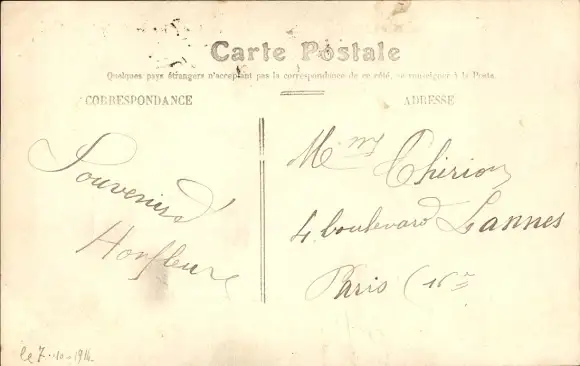 Carte Postale
Quelques pays étrangers n'acceptent pas la correspondance de ce côté, se renseigner à la Poste.
CORRESPONDANCE
ADRESSE
Souvenirs d'
Honfleur
Mme Thérion
4 boulevard Lannes
Paris (16e
le 7-10-1914.